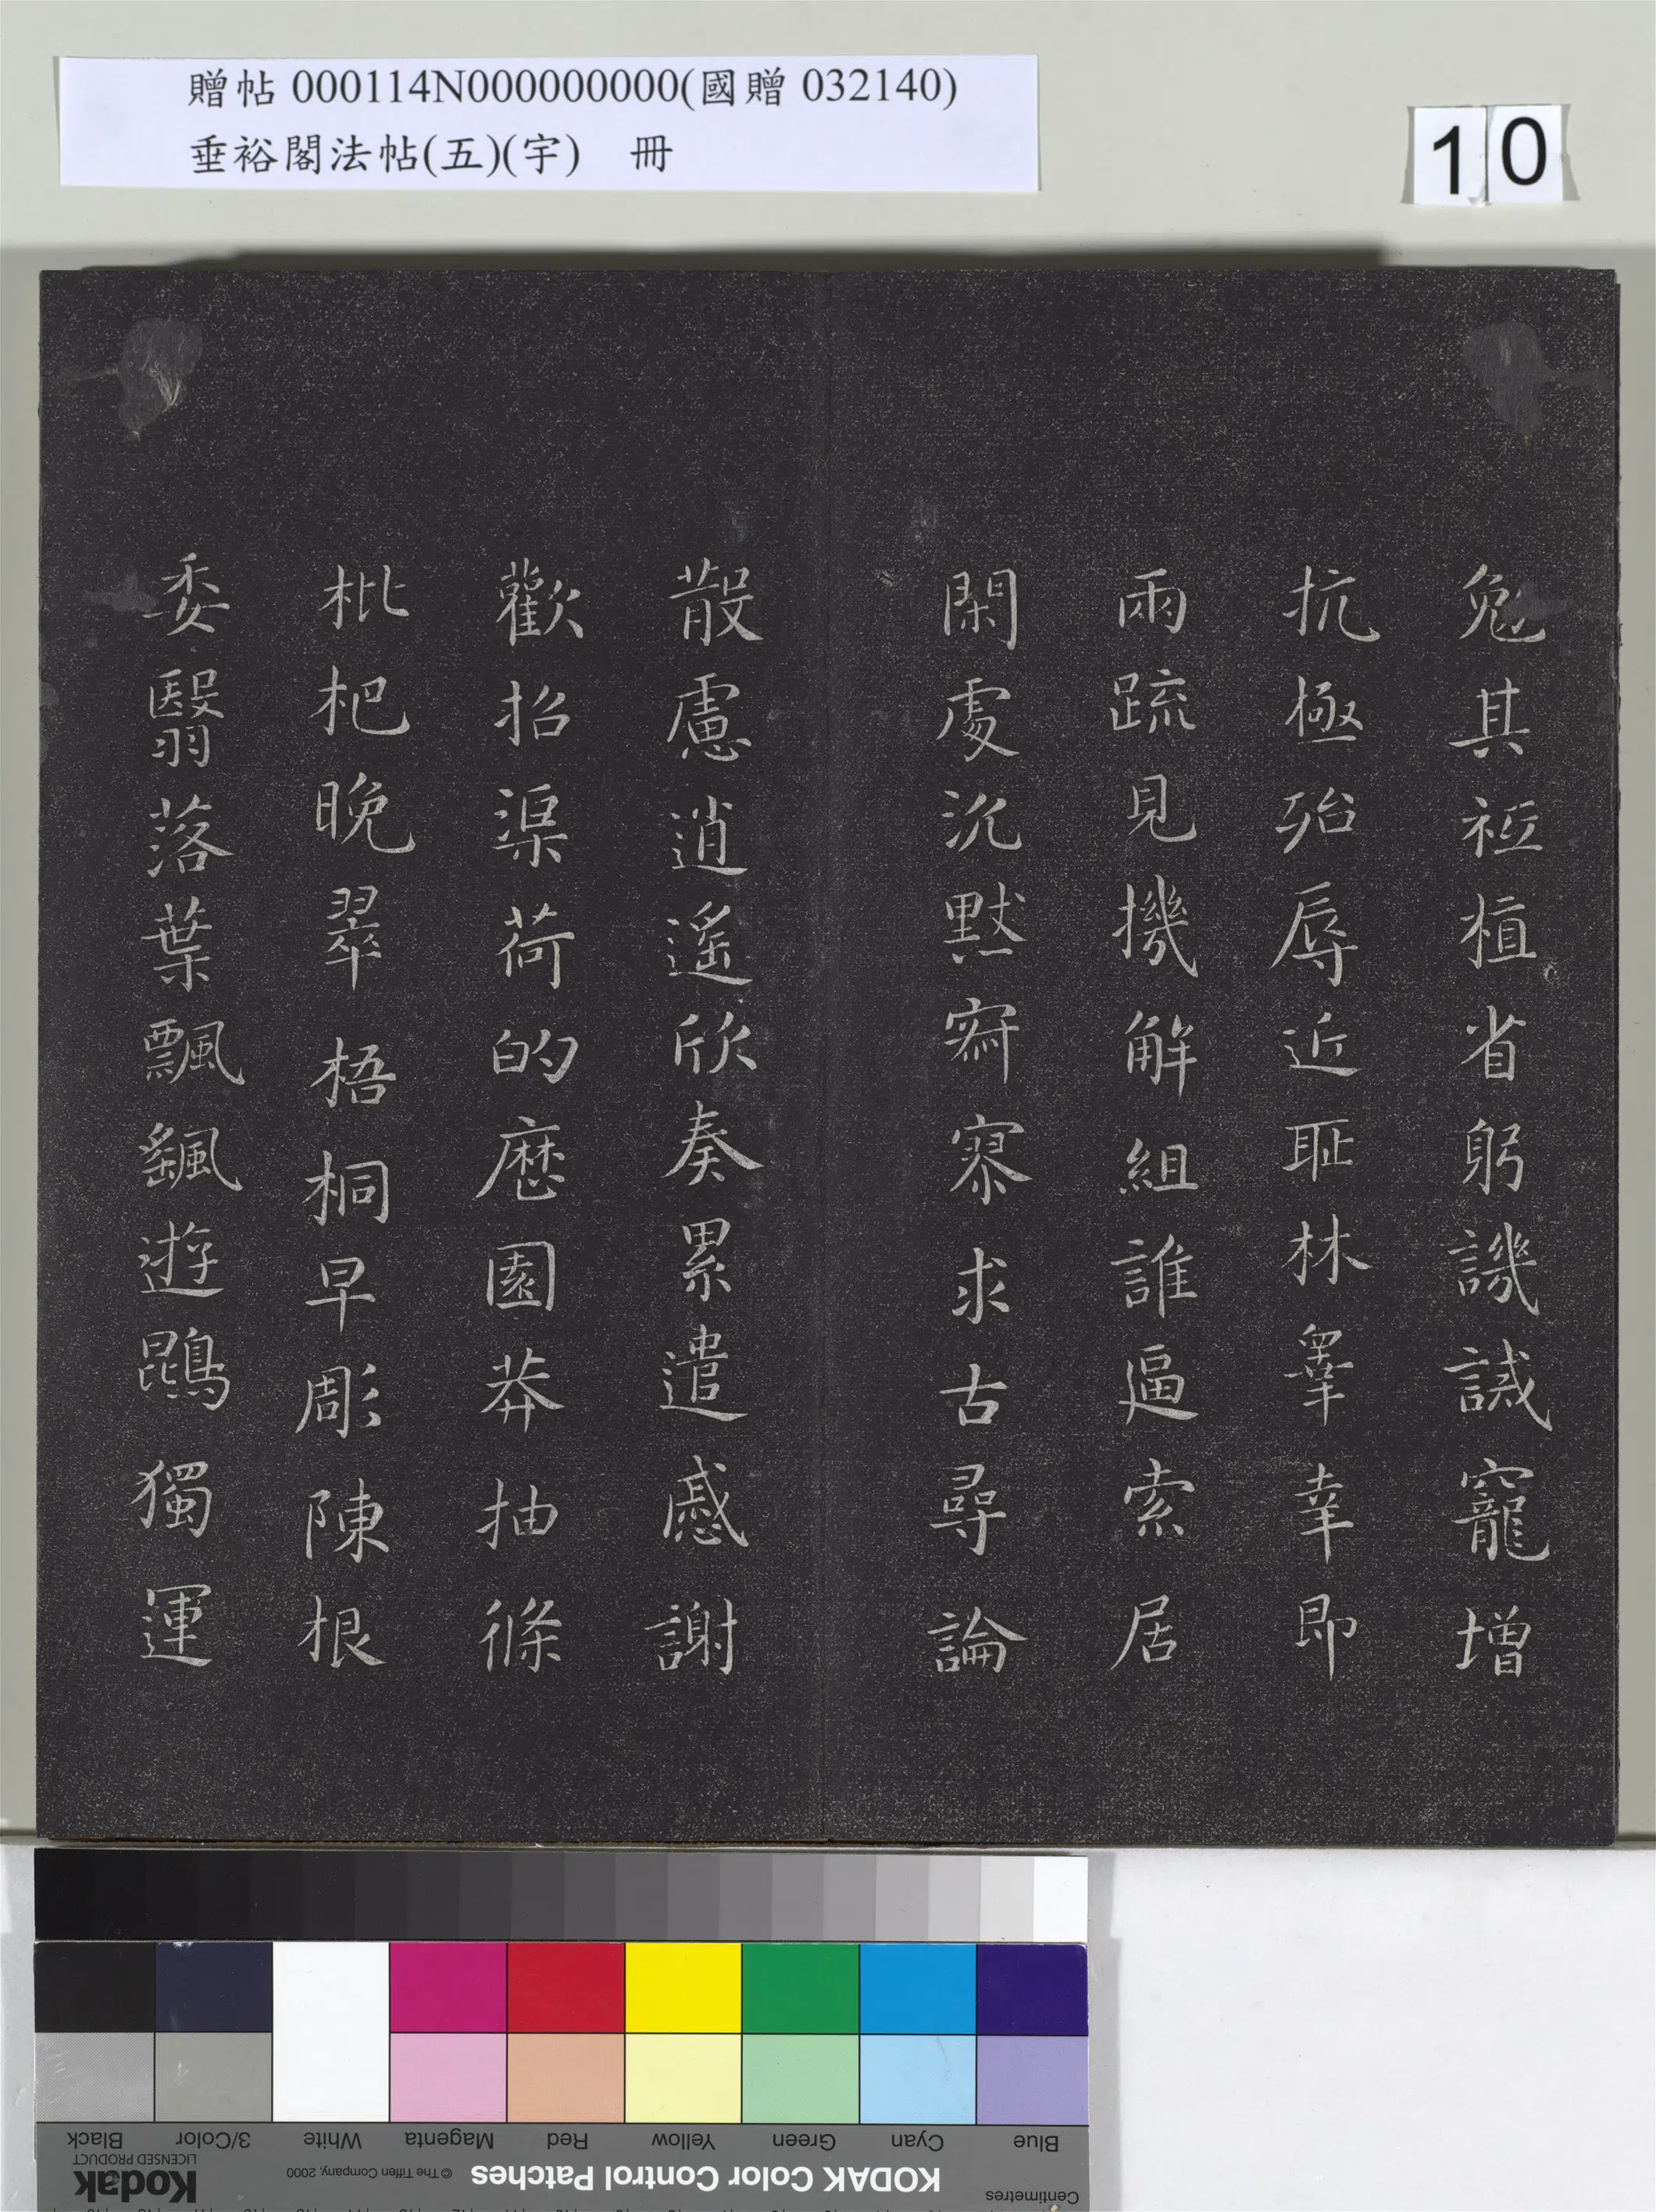 贈帖 000114N000000000(國贈 032140)
垂裕閣法帖(五)(宇) 冊
10
勉其祗植省躬譏誡寵增
抗極殆辱近恥林睾幸即
兩疏見機解組誰逼索居
閑處沉默寂寥求古尋論
散慮逍遙欣奏累遣慼謝
歡招渠荷的歷園莽抽條
枇杷晚翠梧桐早彫陳根
委翳落葉飄颻遊鵾獨運
Blue
Cyan
Green
Yellow
Red
Magenta
White
3/Color
Black
Centimetres
KODAK Color Control Patches
© The Tiffen Company, 2000
Kodak
LICENSED PRODUCT